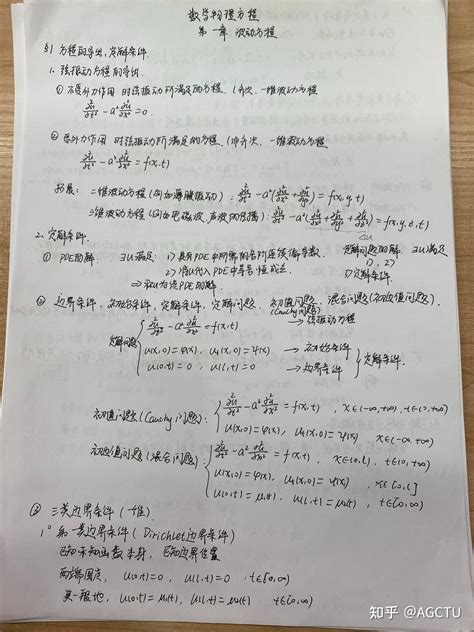 数学物理方程
第一章 波动方程
§1 方程的导出,定解条件
1. 弦振动方程的导出
① 不受外力作用时弦振动所满足的方程. (齐次.一维波动方程
∂²u/∂t² - a² ∂²u/∂x² = 0.
② 受外力作用 时弦振动所满足的方程. (非齐次.一维波动方程
∂²u/∂t² - a² ∂²u/∂x² = f(x,t)
拓展: 二维波动方程(例如薄膜振动): ∂²u/∂t² - a²(∂²u/∂x² + ∂²u/∂y²) = f(x,y,t)
三维波动方程(例如电磁波,声波的传播): ∂²u/∂t² - a²(∂²u/∂x² + ∂²u/∂y² + ∂²u/∂z²) = f(x,y,z,t)
2. 定解条件
① PDE的解. ∃u满足: 1) 具有PDE中所需的各阶连续偏导数 定解问题的解. ∃u满足
2) 将u代入PDE中等号恒成立. 1), 2)
→ 称u为该PDE的解. 3) 定解条件.
② 边界条件, 初始条件, 定解条件, 定解问题. 初值问题(Cauchy问题) 混合问题(初边值问题).
定解问题 ∂²u/∂t² - a² ∂²u/∂x² = f(x,t) → 弦振动方程
u(x,0)=φ(x), u_t(x,0)=ψ(x) → 初始条件 定解条件.
u(0,t)=0, u(l,t)=0 → 边界条件
初值问题(Cauchy问题): ∂²u/∂t² - a² ∂²u/∂x² = f(x,t), x∈(-∞,+∞), t∈(0,+∞)
u(x,0)=φ(x), u_t(x,0)=ψ(x) x∈(-∞,+∞)
初边值问题(混合问题): ∂²u/∂t² - a² ∂²u/∂x² = f(x,t), x∈(0,l), t∈(0,+∞)
u(x,0)=φ(x), u_t(x,0)=ψ(x) x∈[0,l]
u(0,t)=μ₁(t), u(l,t)=μ₂(t), t∈[0,∞)
③ 三类边界条件 (一维)
1° 第一类边界条件 (Dirichlet边界条件)
已知未知函数本身, 已知边界位置
两端固定, u(0,t)=0, u(l,t)=0 t∈[0,∞)
更一般地, u(0,t)=μ₁(t), u(l,t)=μ₂(t) t∈[0,∞)
知乎 @AGCTU